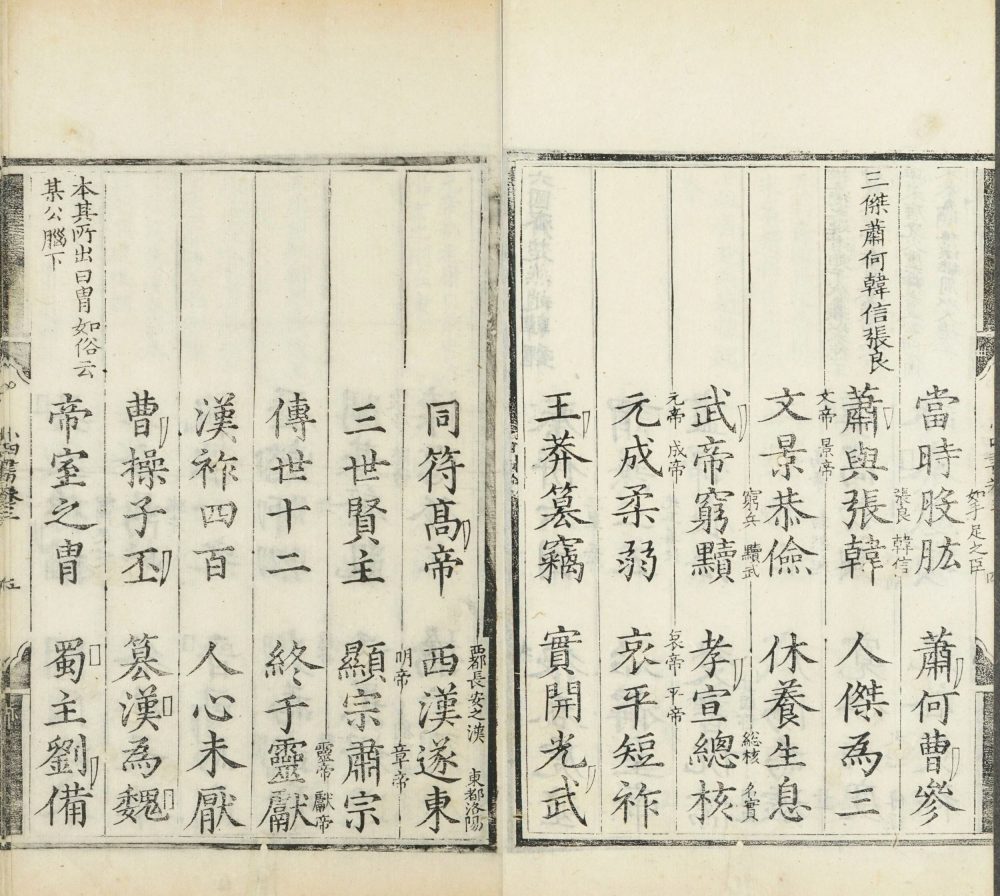 當時股肱 蕭何曹參
如手足之臣
三傑蕭何韓信張良
蕭與張韓 人傑為三
張良 韓信
文景恭儉 休養生息
文帝 景帝
武帝窮黷 孝宣總核
窮兵 黷武 総核 名實
元成柔弱 哀平短祚
元帝 成帝 哀帝 平帝
王莽篡竊 實開光武
同符高帝 西漢遂東
西都長安之漢 東都洛陽
三世賢主 顯宗肅宗
明帝 章帝
傳世十二 終于靈獻
靈帝 獻帝
漢祚四百 人心未厭
曹操子丕 篡漢為魏
本其所出曰胄如俗云
某公腦下
帝室之胄 蜀主劉備